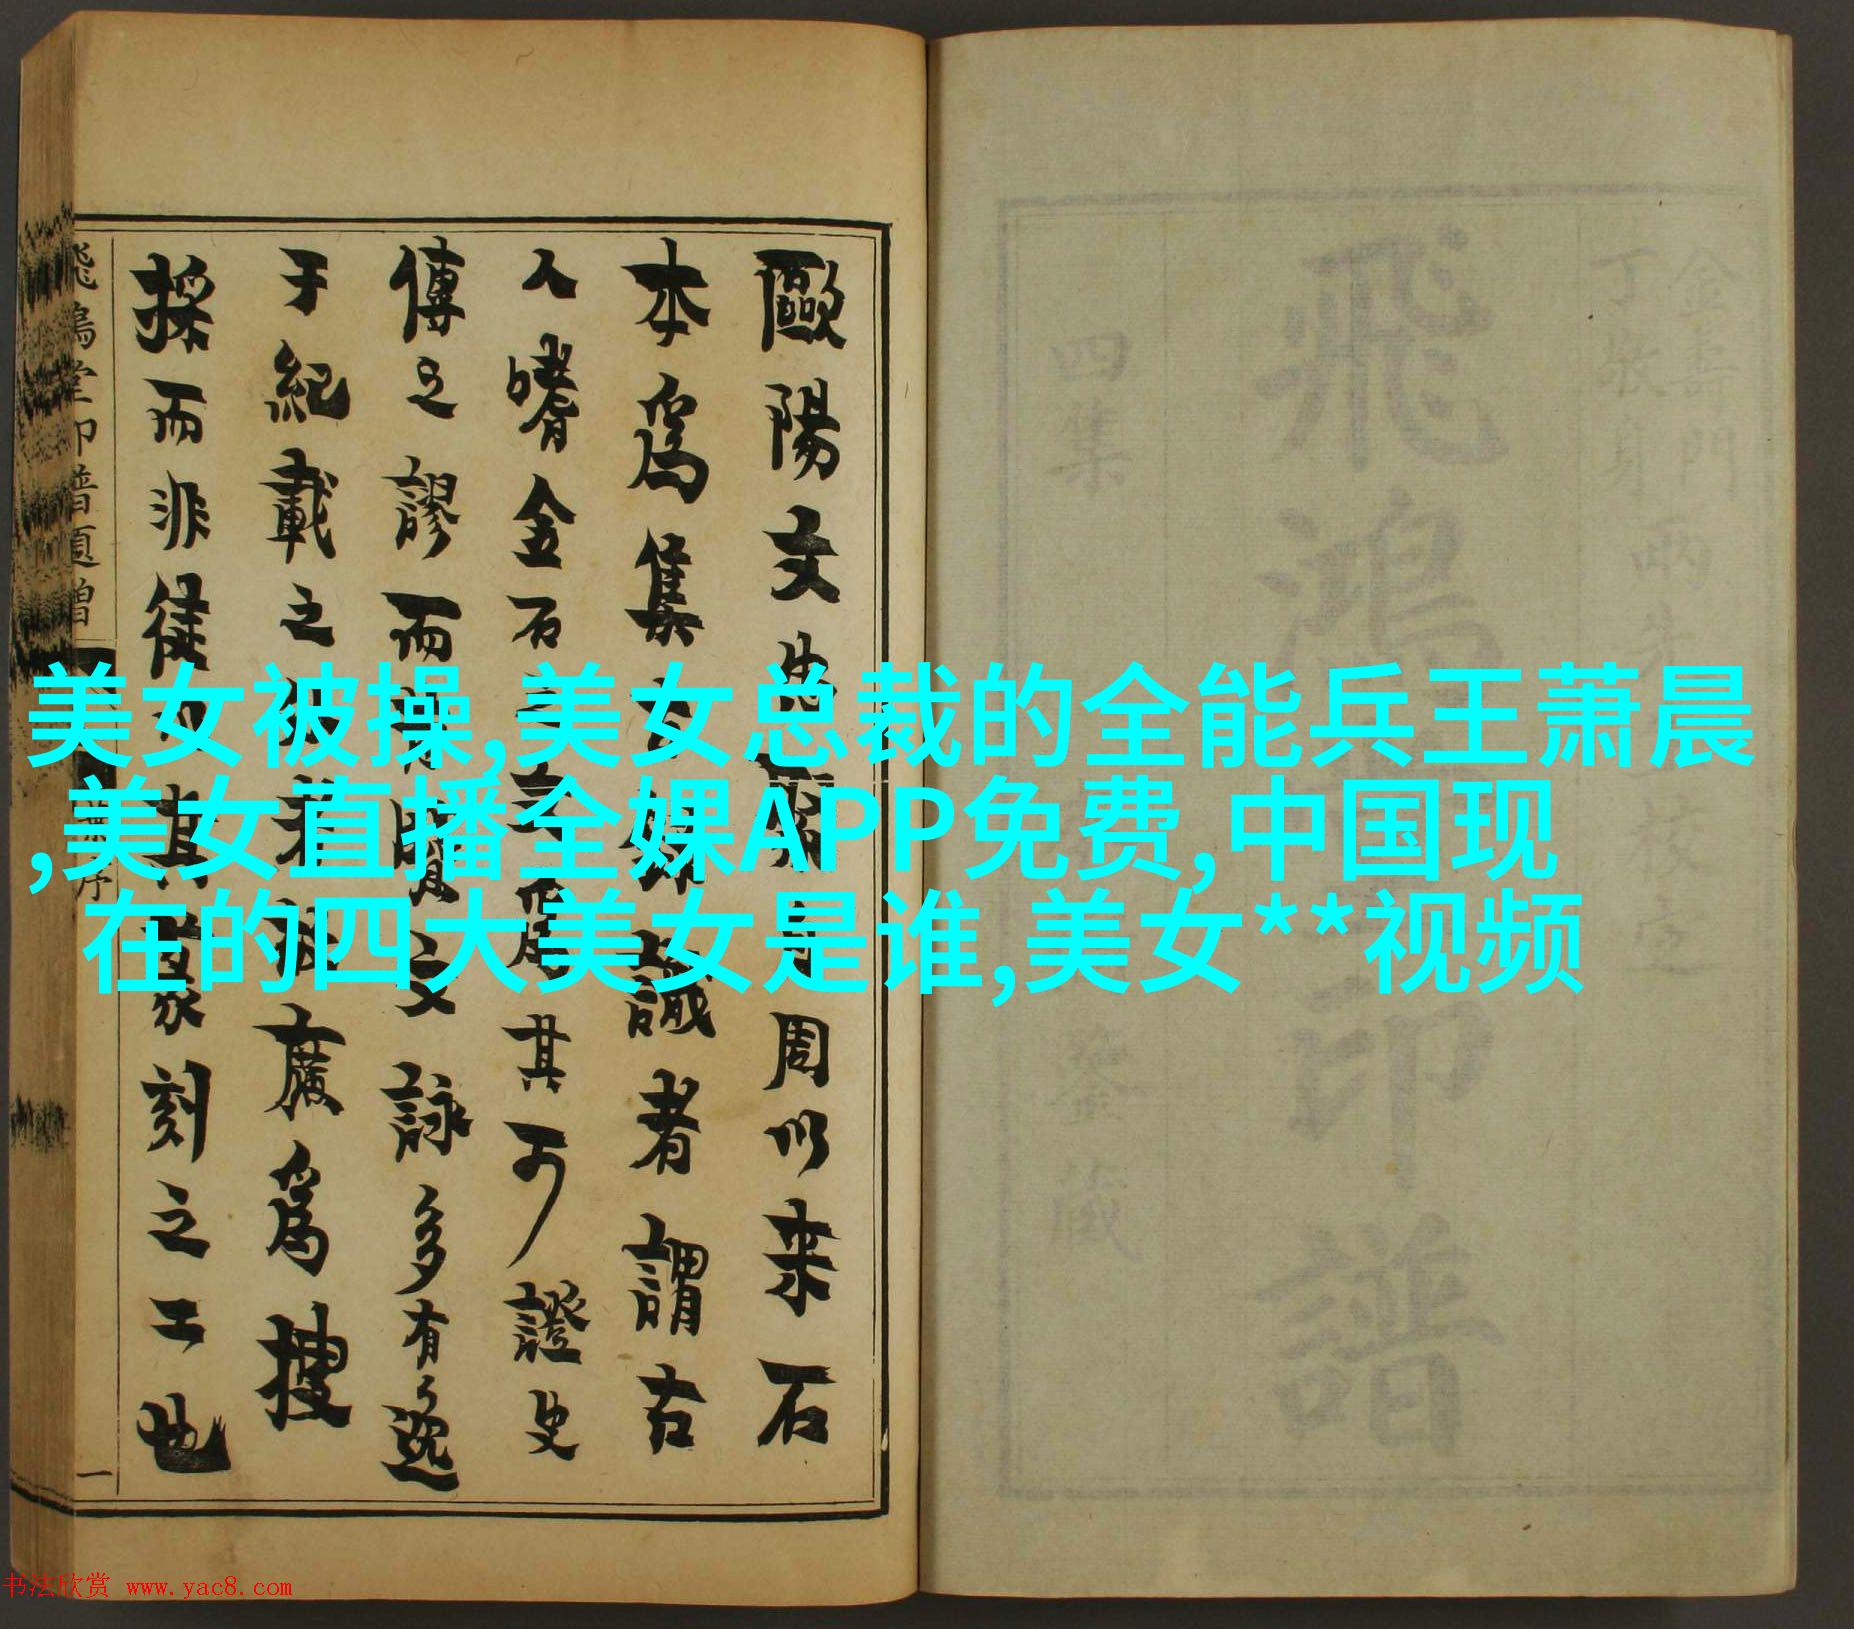 金壽門
丁敬身
兩先生校定
飛鴻印譜
四集
鑒藏
歐陽文忠周以来石
本爲集古錄識者謂古
人嗜金石其可證史
傳之謬而文詠多有逸
于紀載之者廣爲搜
採而非徒篆刻之工也
飛鴻堂印譜
序
一
美女被操,美女总裁的全能兵王萧晨
,美女直播全婐APP免费,中国现
在的四大美女是谁,美女**视频
书法欣赏 www.yac8.com